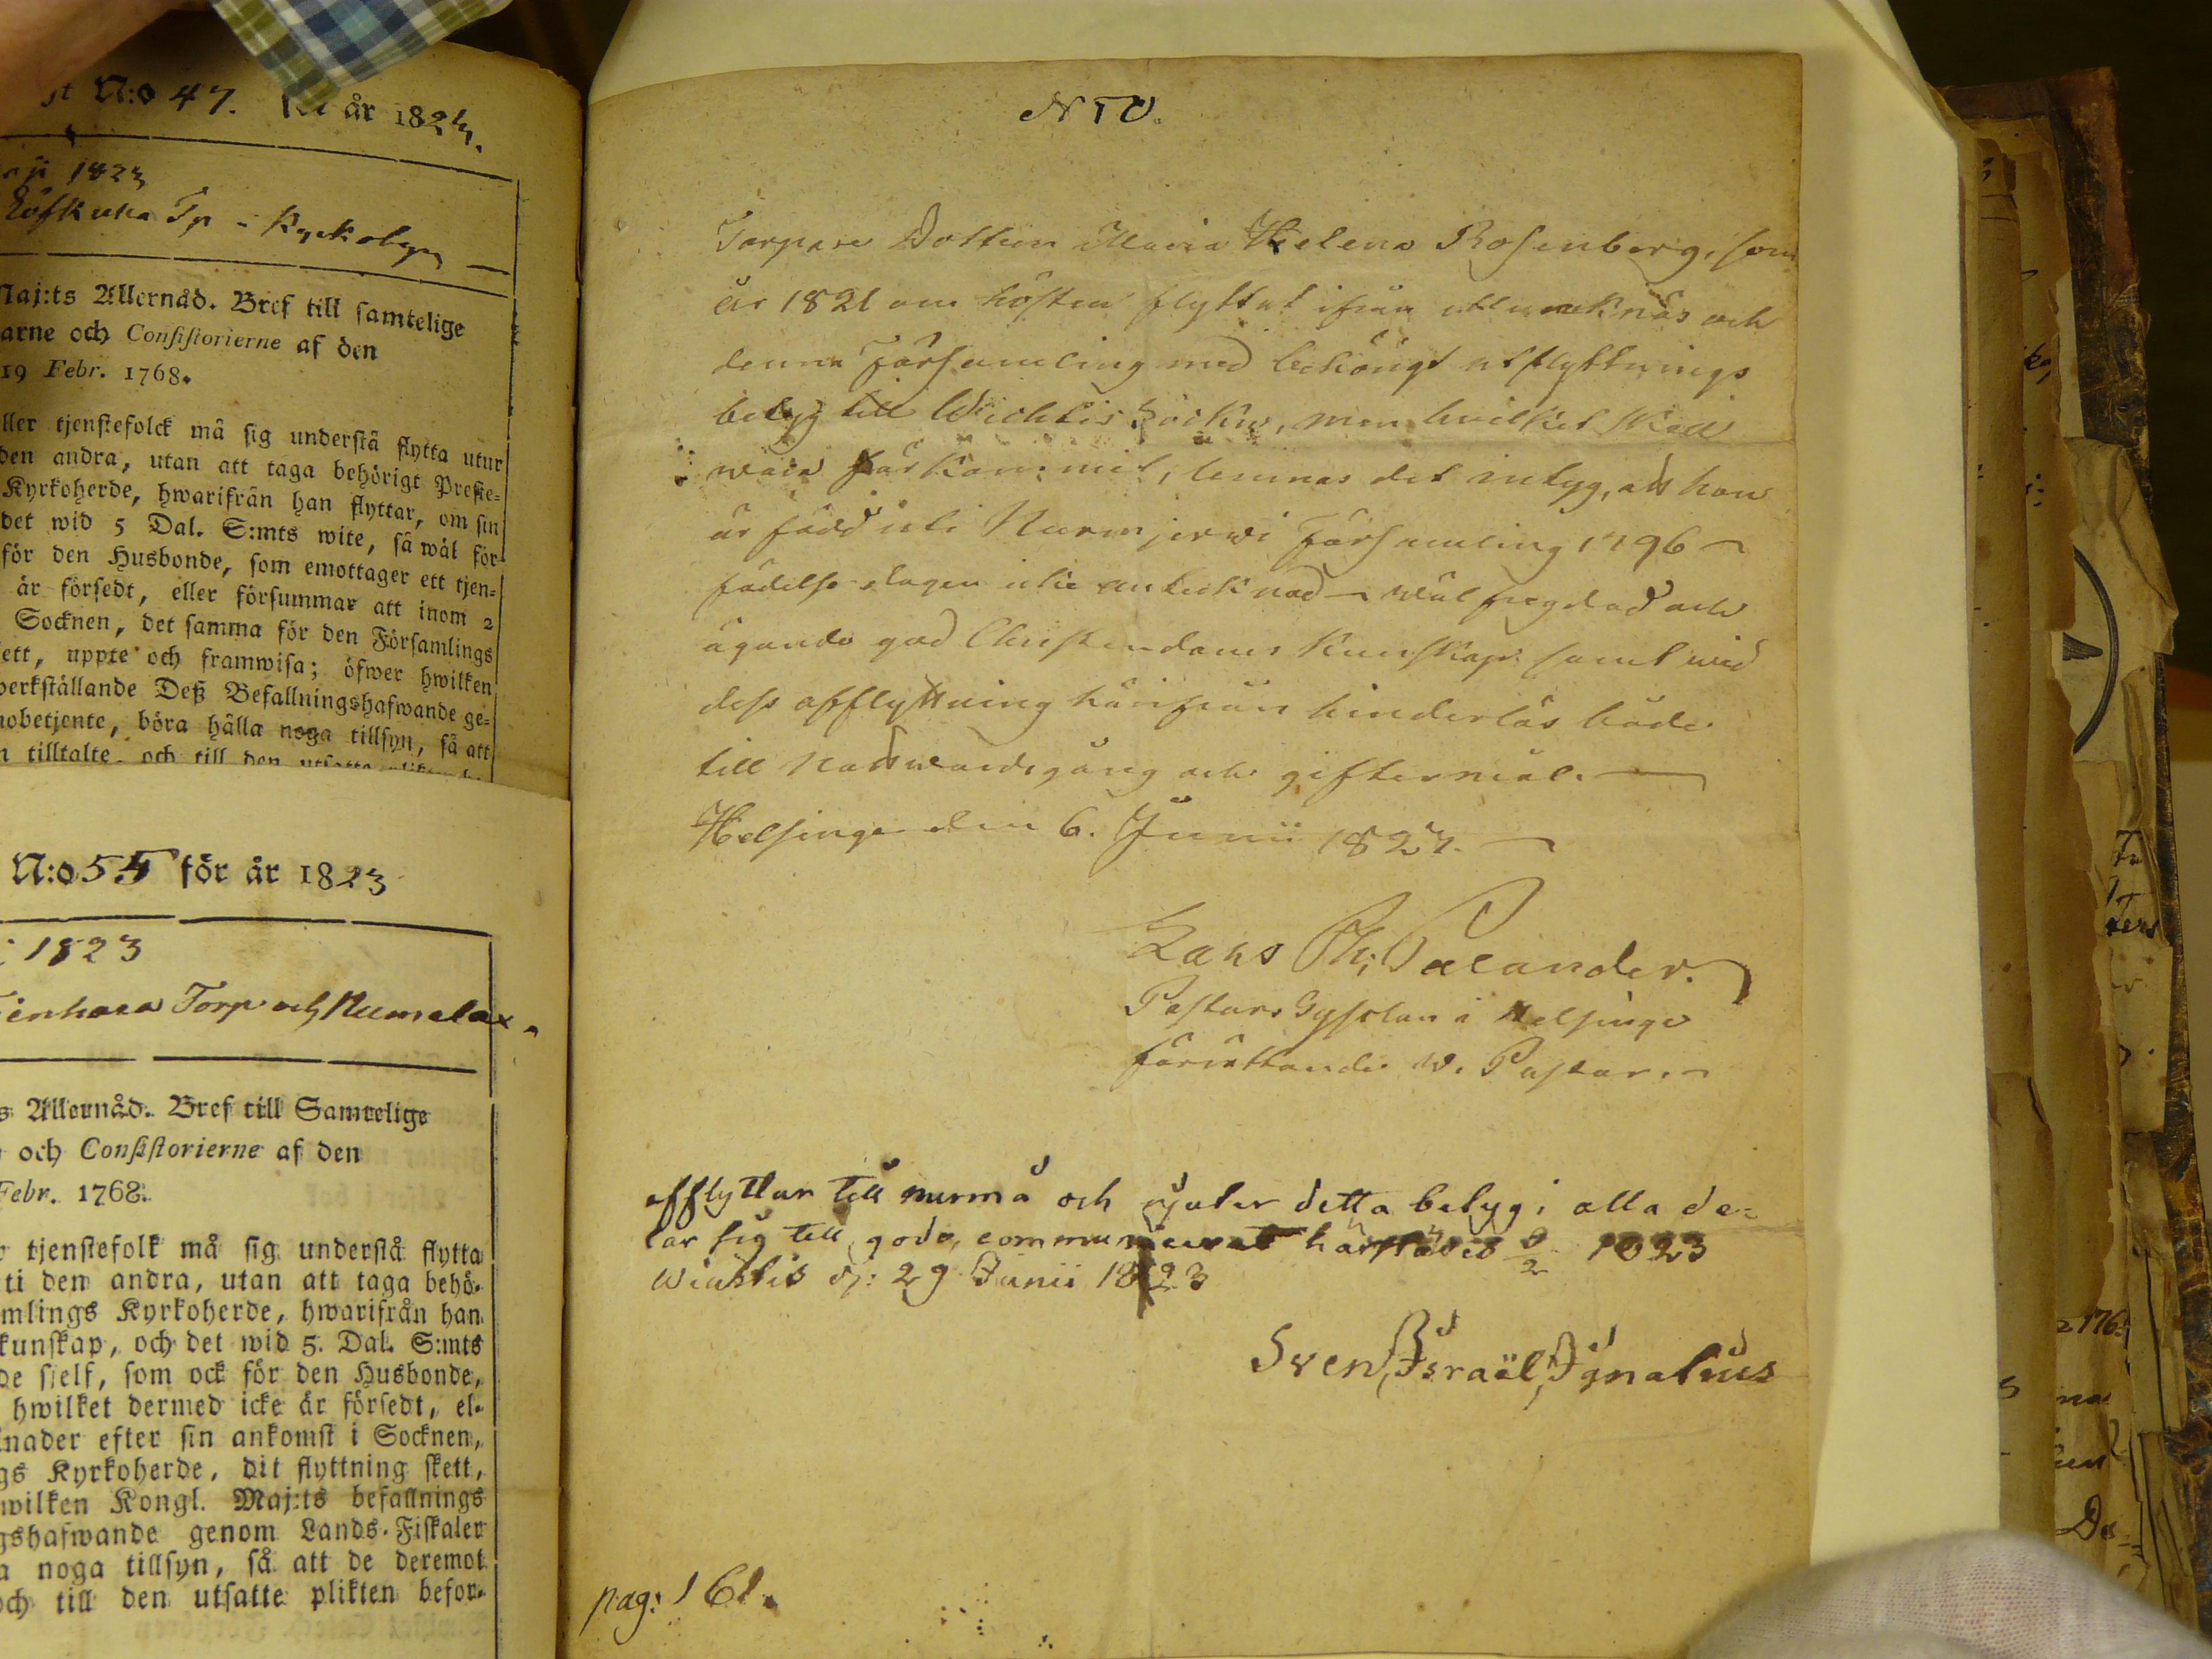 N:o 47. år 1823.
1823
Kyrkobyn
Maj:ts Allernåd. Bref till samtelige
arne och Consistorierne af den
19 Febr. 1768.
ller tjenstefolck må sig understå flytta utur
den andra, utan att taga behörigt Preste-
Kyrkoherde, hwarifrån han flyttar, om sin
det wid 5 Dal. S:mts wite, så wäl för
för den Husbonde, som emottager ett tjen-
är försedt, eller försummar att inom 2
Socknen, det samma för den Församlings
ett, uppte och framwisa; öfwer hwilken
werkställande Deß Befallningshafwande ge-
nobetjente, böra hålla noga tillsyn, så att
n tilltalte och till den utsatte
N:o 54 för år 1823
1823
Torp och Numelax
s Allernåd. Bref till Samtelige
och Consistorierne af den
Febr. 1768.
tjenstefolk må sig understå flytta
ti den andra, utan att taga behö-
mlings Kyrkoherde, hwarifrån han
kunskap, och det wid 5. Dal. S:mts
de sjelf, som ock för den Husbonde,
hwilket dermed icke är försedt, el-
nader efter sin ankomst i Socknen,
gs Kyrkoherde, dit flyttning skett,
wilken Kongl. Maj:ts befallnings
gshafwande genom Lands-Fiskaler
a noga tillsyn, så att de deremot
och till den utsatte plikten befor-
N 50.
Torpare Dottern Maria Helena Rosenberg, som
år 1821 om hösten flyttat ifrån Munknäs och
denna Församling med behörigt utflyttnings
betyg till Wichtis Sockn, men hvilket skall
vara förkommit, lemnas det intyg, att hon
är född uti Nurmjerwi Församling 1796
födelse dagen icke antecknad wäl frägdad och
ägande god Christendoms Kunskap samt wid
dess afflyttning härifrån hinderlös både
till Nattwardsgång och giftermål.
Helsinge den 6. Junii 1823.
Lars Th: Palander.
Pastors Sysslan i Helsinge
förrättande V. Pastor.
afflyttar till nummå och njuter detta betyg i alla de-
lar sig till godo, communicerat härstädes 9/2 1823
Wichtis d: 29 Junii 1823
Sven Israël Ignatius
pag: 161.